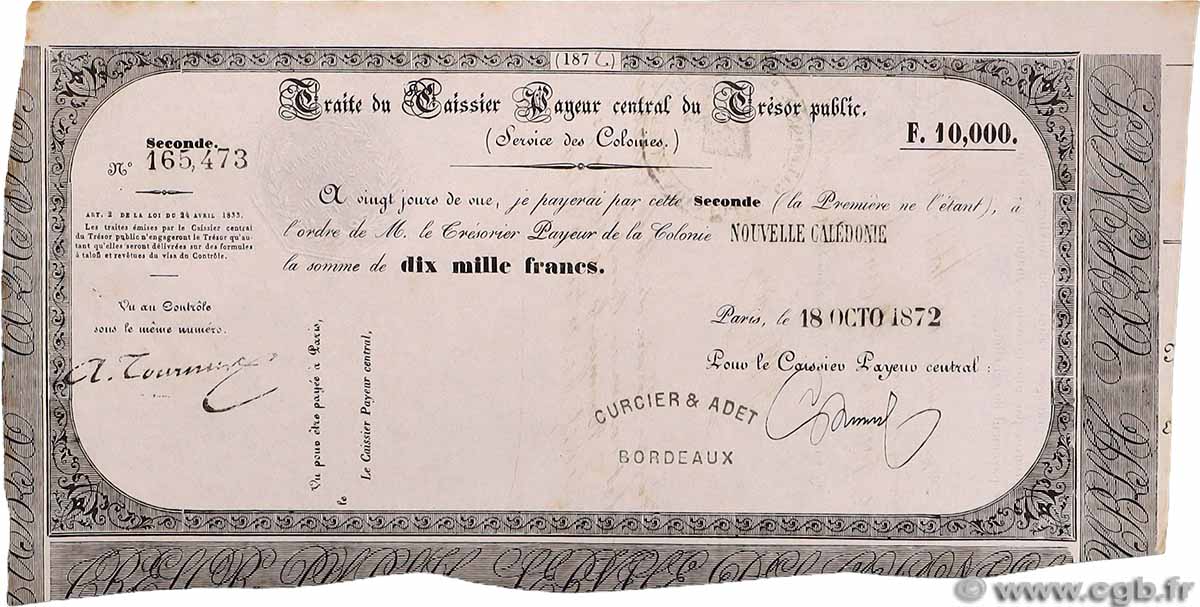 (1872)
Traite du Caissier Payeur central du Trésor public.
(Service des Colonies.)
F. 10,000.
Seconde.
N° 165,473
ART. 2 DE LA LOI DU 24 AVRIL 1833.
Les traites émises par le Caissier central
du Trésor public n'engageront le Trésor qu'au-
tant qu'elles seront délivrées sur des formules
à talon et revêtues du visa du Contrôle.
Vu au Contrôle
sous le même numéro.
A vingt jours de vue, je payerai par cette Seconde (la Première ne l'étant), à
l'ordre de M. le Trésorier Payeur de la Colonie NOUVELLE CALÉDONIE
la somme de dix mille francs.
Paris, le 18 OCTO 1872
Pour le Caissier Payeur central :
Vu pour être payée à Paris,
le
Le Caissier Payeur central,
CURCIER & ADET
BORDEAUX
www.cgb.fr